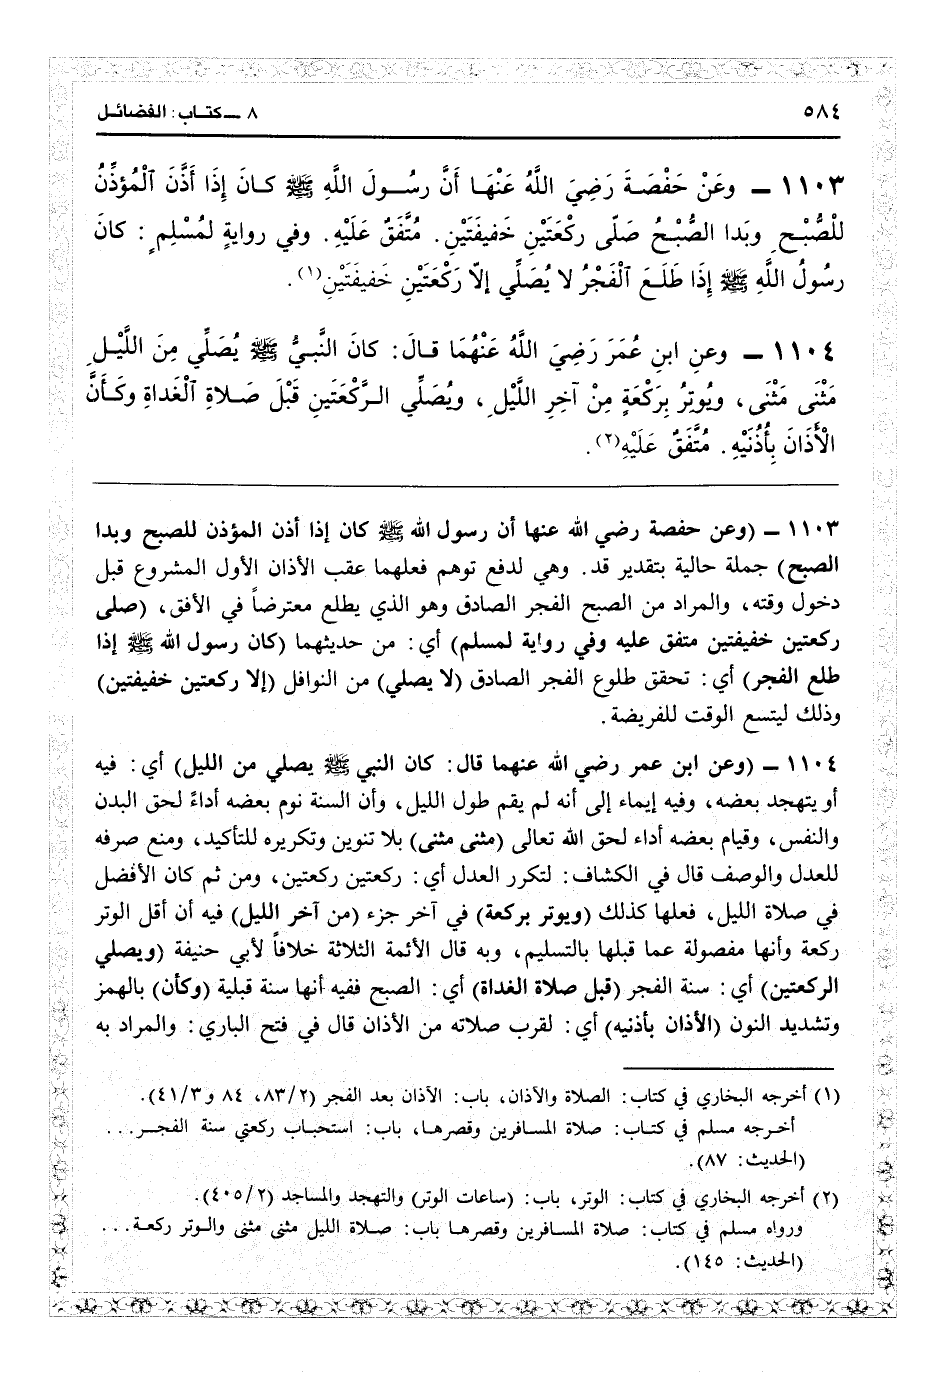 ٥٨٤
٨ ـ كتاب: الفضائل
١١٠٣ ـ وعَنْ حَفْصَةَ رَضِيَ اللَّهُ عَنْهَا أَنَّ رسُولَ اللَّهِ ﷺ كانَ إِذَا أَذَّنَ ٱلْمُؤَذِّنُ
لِلصُّبْحِ وبَدا الصُّبْحُ صَلّى ركْعَتَيْنِ خَفِيفَتَيْنِ. مُتَّفَقٌ عَلَيْهِ. وفي روايةٍ لمُسْلِمٍ: كانَ
رسُولُ اللَّهِ ﷺ إِذَا طَلَعَ ٱلْفَجْرُ لا يُصَلِّي إلاّ رَكْعَتَيْنِ خَفيفَتَيْنِ(١).
١١٠٤ ـ وعنِ ابنِ عُمَرَ رَضِيَ اللَّهُ عَنْهُمَا قالَ: كانَ النَّبيُّ ﷺ يُصَلِّي مِنَ اللَّيْلِ
مَثْنَى مَثْنَى، ويُوتِرُ بِرَكْعَةٍ مِنْ آخِرِ اللَّيْلِ، ويُصَلِّي الرَّكْعَتَينِ قَبْلَ صَلاةِ ٱلْغَداةِ وكَأَنَّ
الْأَذَانَ بِأُذُنَيْهِ. مُتَّفَقٌ عَلَيْهِ(٢).
١١٠٣ ـ (وعن حفصة رضي الله عنها أن رسول الله ﷺ كان إذا أذن المؤذن للصبح وبدا
الصبح) جملة حالية بتقدير قد. وهي لدفع توهم فعلهما عقب الأذان الأول المشروع قبل
دخول وقته، والمراد من الصبح الفجر الصادق وهو الذي يطلع معترضاً في الأفق، (صلى
ركعتين خفيفتين متفق عليه وفي رواية لمسلم) أي: من حديثهما (كان رسول الله ﷺ إذا
طلع الفجر) أي: تحقق طلوع الفجر الصادق (لا يصلي) من النوافل (إلا ركعتين خفيفتين)
وذلك ليتسع الوقت للفريضة.
١١٠٤ ـ (وعن ابن عمر رضي الله عنهما قال: كان النبي ﷺ يصلي من الليل) أي: فيه
أو يتهجد بعضه، وفيه إيماء إلى أنه لم يقم طول الليل، وأن السنة نوم بعضه أداءً لحق البدن
والنفس، وقيام بعضه أداء لحق الله تعالى (مثنى مثنى) بلا تنوين وتكريره للتأكيد، ومنع صرفه
للعدل والوصف قال في الكشاف: لتكرر العدل أي: ركعتين ركعتين، ومن ثم كان الأفضل
في صلاة الليل، فعلها كذلك (ويوتر بركعة) في آخر جزء (من آخر الليل) فيه أن أقل الوتر
ركعة وأنها مفصولة عما قبلها بالتسليم، وبه قال الأئمة الثلاثة خلافاً لأبي حنيفة (ويصلي
الركعتين) أي: سنة الفجر (قبل صلاة الغداة) أي: الصبح ففيه أنها سنة قبلية (وكأن) بالهمز
وتشديد النون (الأذان بأذنيه) أي: لقرب صلاته من الأذان قال في فتح الباري: والمراد به
(١) أخرجه البخاري في كتاب: الصلاة والآذان، باب: الآذان بعد الفجر (٨٣/٢، ٨٤ و٤١/٣).
أخرجه مسلم في كتاب: صلاة المسافرين وقصرها، باب: استحباب ركعتي سنة الفجر...
(الحديث: ٨٧).
(٢) أخرجه البخاري في كتاب: الوتر، باب: (ساعات الوتر) والتهجد والمساجد (٤٠٥/٢).
ورواه مسلم في كتاب: صلاة المسافرين وقصرها باب: صلاة الليل مثنى مثنى والوتر ركعة...
(الحديث: ١٤٥).